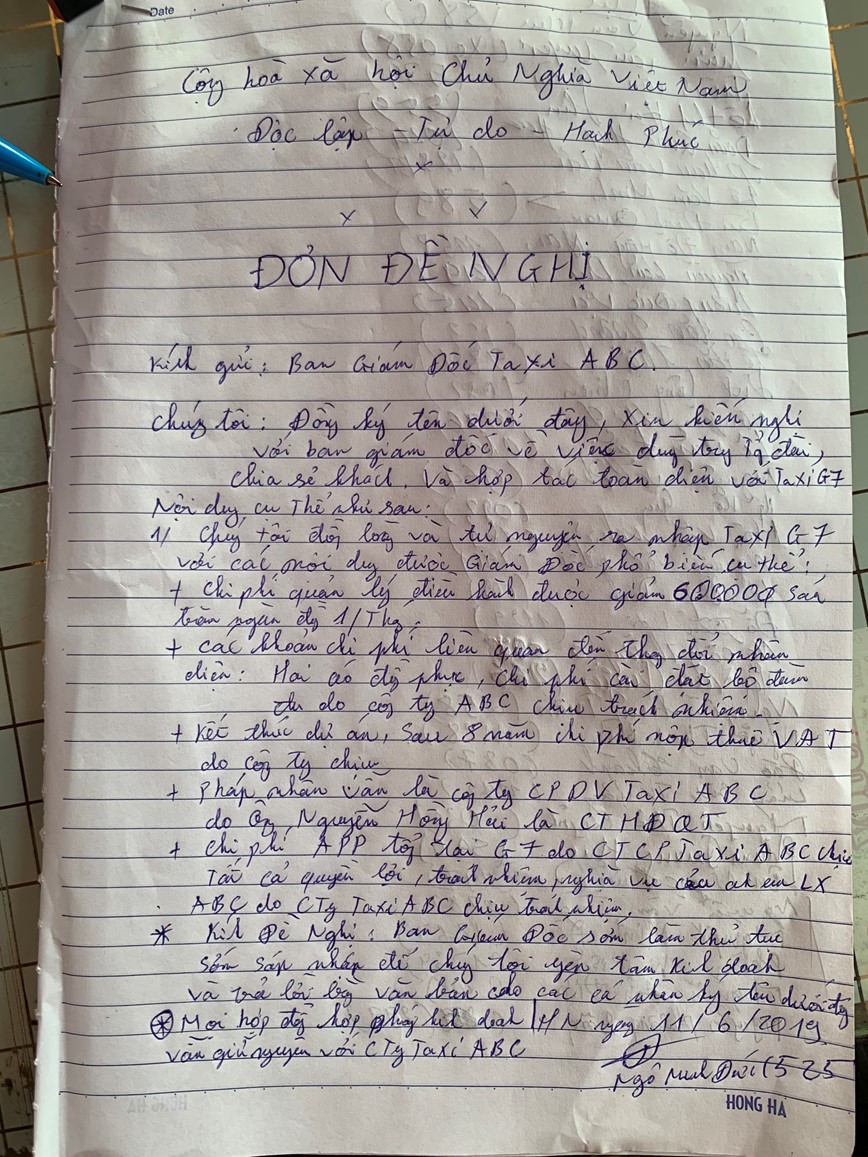 Date
Cộng hoà xã hội Chủ Nghĩa Việt Nam
Độc lập - Tự do - Hạnh Phúc
ĐƠN ĐỀ NGHỊ
Kính gửi: Ban Giám Đốc Taxi ABC.
Chúng tôi: Đồng ký tên dưới đây, xin kiến nghị
với ban giám đốc về việc duy trỳ Tổng đài,
chia sẻ khách. Và hợp tác toàn diện với Taxi G7
Nội dung cụ Thể như sau:
1/ Chúng tôi đồng lòng và tự nguyện ra nhập Taxi G7
với các nội dung được Giám Đốc phổ biến cụ thể:
+ Chi phí quản lý điều hành được giảm 600000 Sáu
trăm ngàn đồng 1/Thg.
+ Các khoản chi phí liên quan đến thay đổi nhân
diện: Hai áo đồng phục, chi phí cài đặt bộ đàm
do công ty ABC chịu trách nhiệm.
+ Kết thúc dự án, sau 8 năm chi phí nộp thuế VAT
do công ty chịu
+ Pháp nhân vẫn là công ty CPDV Taxi ABC
do Ông Nguyễn Hồng Hải là CTHĐQT
+ Chi phí APP tổng đài G7 do CTCP Taxi ABC chịu
Tất cả quyền lợi, trách nhiệm, nghĩa vụ của ah em LX
ABC do CTy Taxi ABC chịu trách nhiệm.
* Kính Đề Nghị: Ban Giám Đốc sớm làm thủ tục
sớm sáp nhập để chúng tôi yên tâm kinh doanh
và trả lời bằng văn bản cho các cá nhân ký tên dưới đây
* Mọi hợp đồng hợp kinh doanh HN ngày 11/6/2019
vẫn giữ nguyên với CTy Taxi ABC
Ngô Minh Đức 525
HONG HA